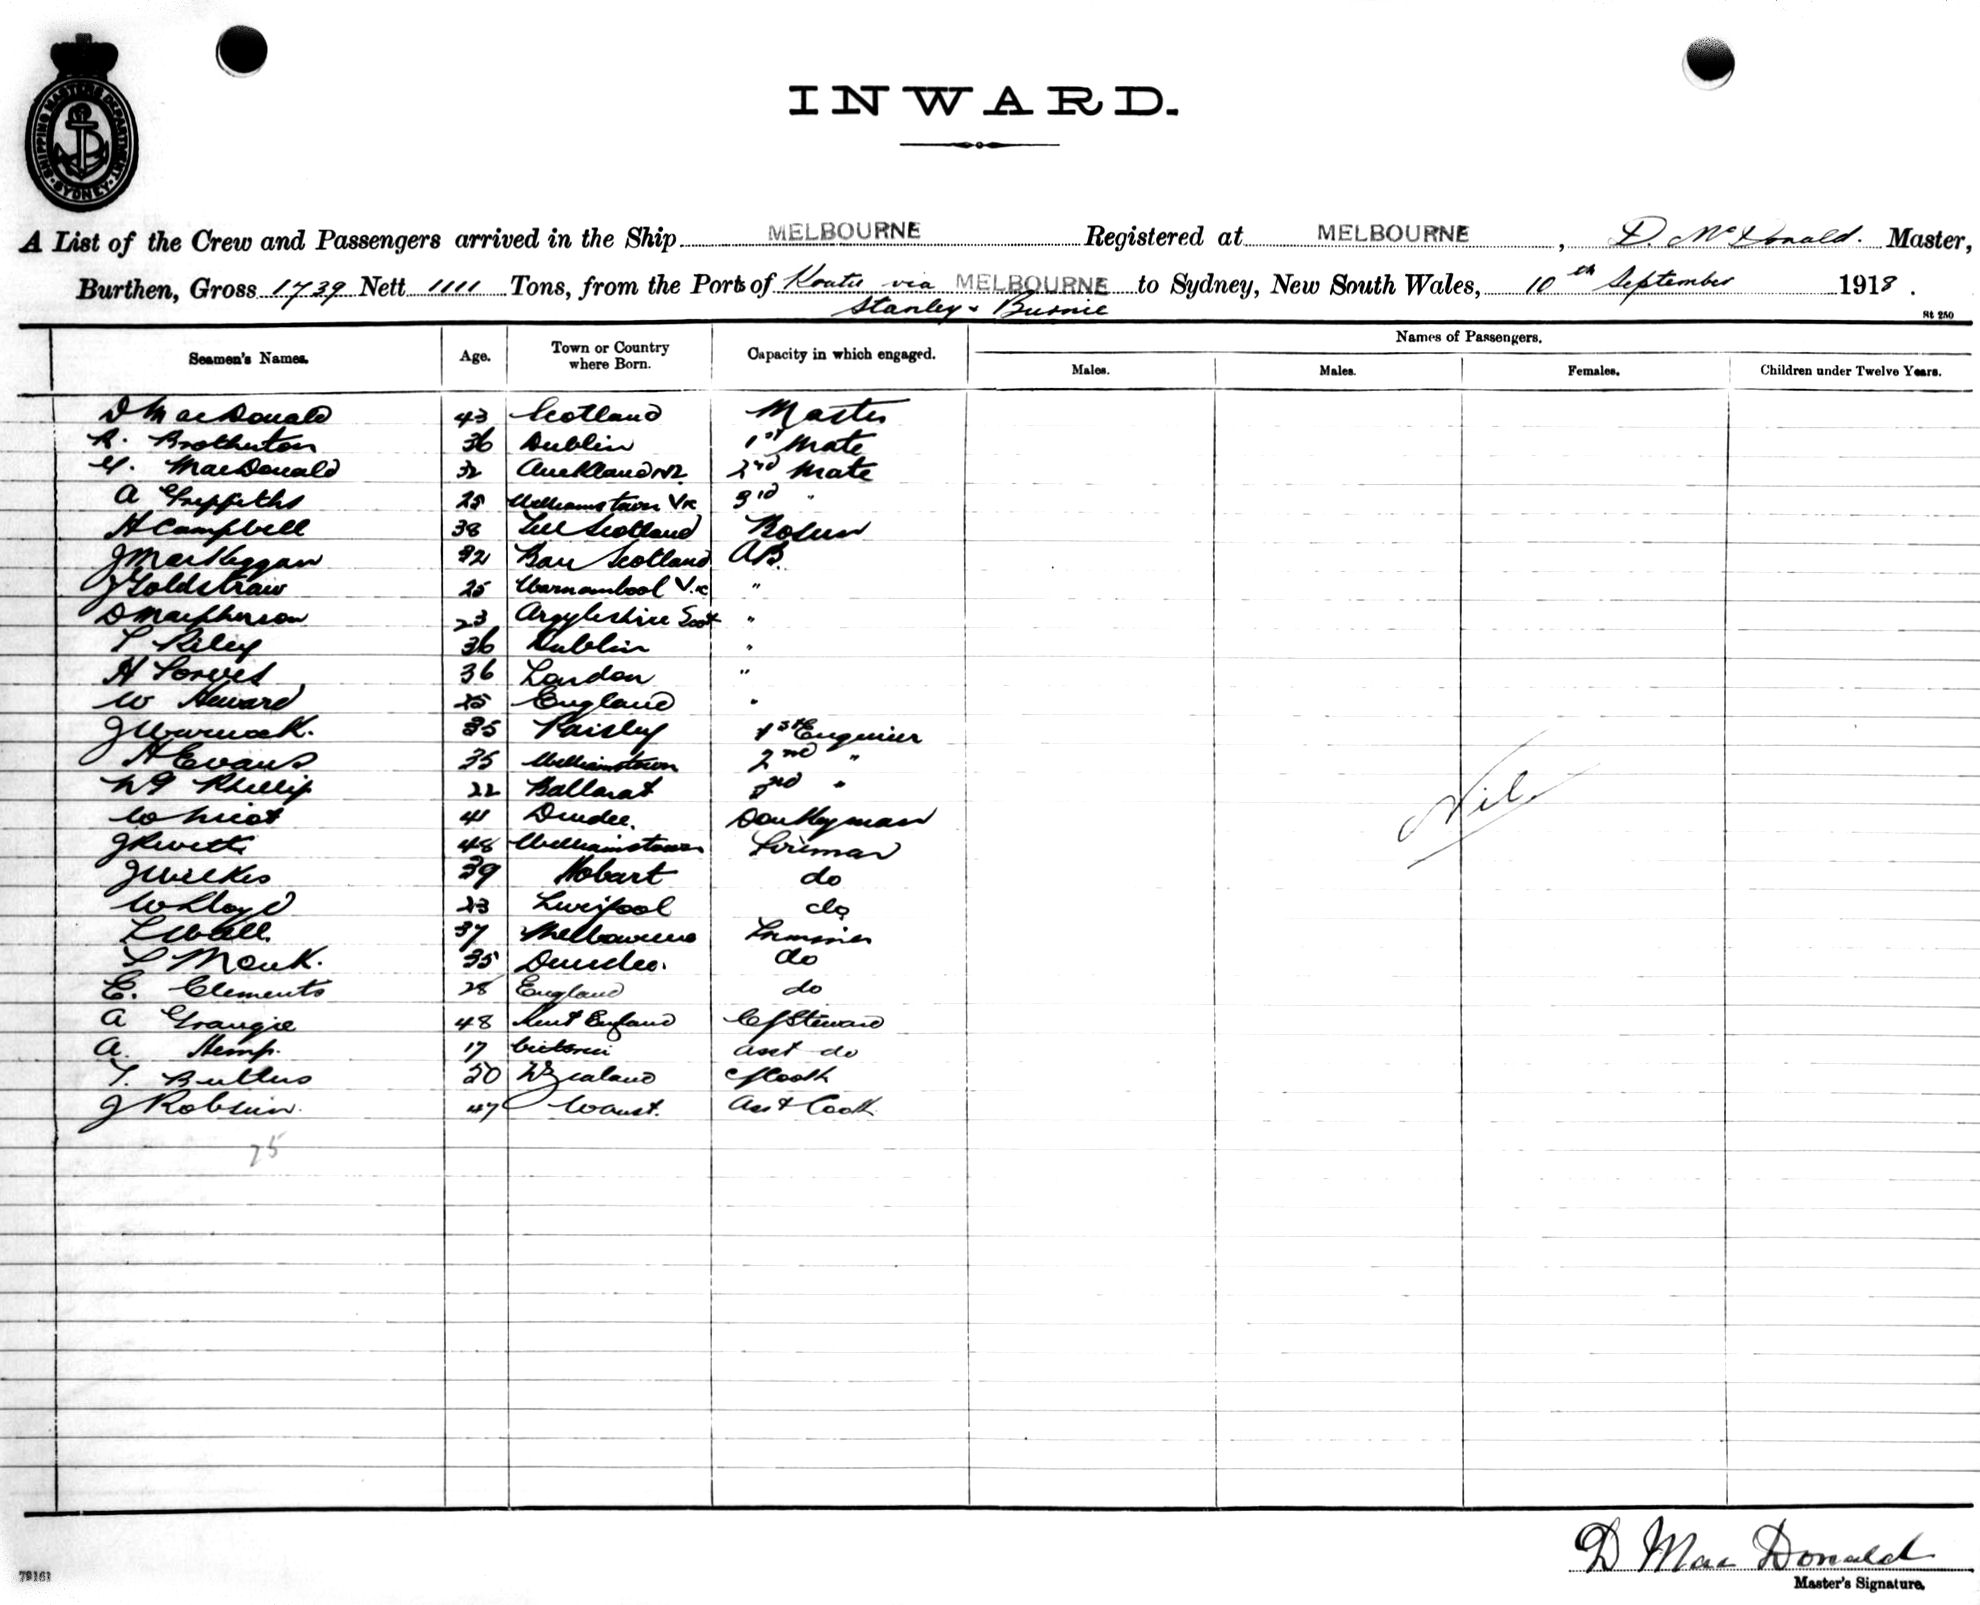 SHIPPING MASTERS DEPARTMENT
SYDNEY
INWARD.
A List of the Crew and Passengers arrived in the Ship MELBOURNE Registered at MELBOURNE, D. McDonald. Master,
Burthen, Gross 1739 Nett 1111 Tons, from the Ports of via MELBOURNE to Sydney, New South Wales, 10th September 1918.
Stanley & Burnie
St 250
Seamen's Names. Age. Town or Country where Born. Capacity in which engaged. Names of Passengers.
Males. Males. Females. Children under Twelve Years.
D MacDonald 43 Scotland Master
R. Brotherton 36 Dublin 1st Mate
MacDonald 32 Auckland NZ 2nd Mate
A Griffiths 25 Williamstown Vic 3rd "
H Campbell 38 Scotland Bosun
J 32 Scotland AB.
J Goldstraw 25 Warnambool Vic "
D Macpherson 23 Argyleshire Scot "
T Riley 36 Dublin "
H 36 London "
W Heward 25 England "
J Warnock. 35 Paisley 1st Engineer
H Evans 35 Williamstown 2nd "
Phillip 22 Ballarat 3rd "
W 41 Dundee. Donkeyman
J 48 Williamstown Fireman
J Wilkes 39 Hobart do
W Lloyd 23 Liverpool do
L Wall. 37 Melbourne Trimmer
Monk. 35 Dundee. do
C. Clements 28 England do
A Grangie 48 Kent England Cf Steward
A. Hemp. 17 Victoria Asst do
T. 50 N Zealand Cf Cook
J 47 W Aust. Asst Cook
25
Nil
D MacDonald
Master's Signature.
79161